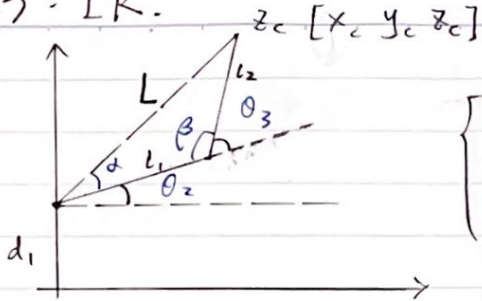 IK.
z_c [x_c y_c z_c]
L
l_2
β
θ_3
α
l_1
θ_2
d_1